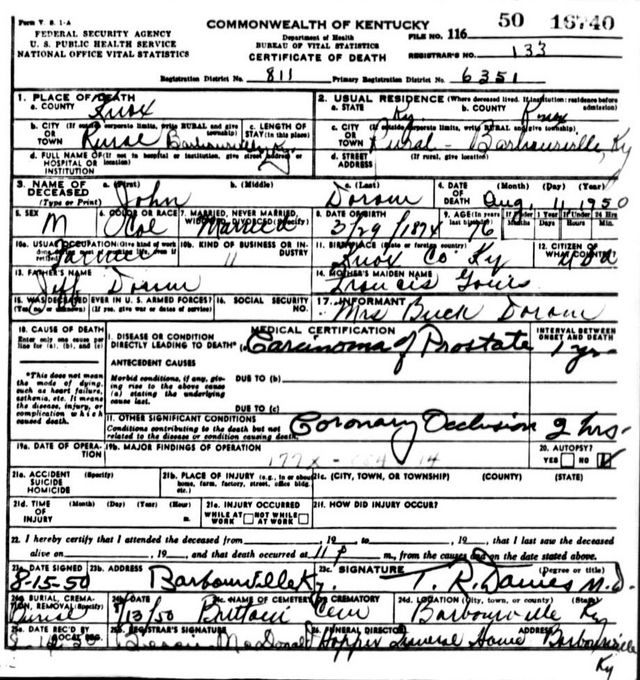 Form V. S. 1-A
FEDERAL SECURITY AGENCY
U. S. PUBLIC HEALTH SERVICE
NATIONAL OFFICE VITAL STATISTICS
COMMONWEALTH OF KENTUCKY
Department of Health
BUREAU OF VITAL STATISTICS
CERTIFICATE OF DEATH
FILE NO. 116 50 16740
REGISTRAR'S NO. 133
Registration District No. 811 Primary Registration District No. 6351
1. PLACE OF DEATH
a. COUNTY Knox
2. USUAL RESIDENCE (Where deceased lived. If institution: residence before admission)
a. STATE Ky. b. COUNTY Knox
b. CITY (If outside corporate limits, write RURAL and give township) OR TOWN Rural Barbourville, Ky.
c. LENGTH OF STAY (in this place)
c. CITY (If outside corporate limits, write RURAL and give township) OR TOWN Rural - Barbourville, Ky
d. FULL NAME OF (If not in hospital or institution, give street address or location) HOSPITAL OR INSTITUTION
d. STREET ADDRESS (If rural, give location)
3. NAME OF DECEASED (Type or Print) a. (First) John b. (Middle) c. (Last)
4. DATE OF DEATH (Month) (Day) (Year) Aug. 11 1950
5. SEX M
6. COLOR OR RACE?
7. MARRIED, NEVER MARRIED, WIDOWED, DIVORCED (Specify) Married
8. DATE OF BIRTH 3/29/1874
9. AGE (In years last birthday) 76 If Under 1 Year Months Days If Under 24 Hrs. Hours Min.
10a. USUAL OCCUPATION (Give kind of work done even if retired) Farmer
10b. KIND OF BUSINESS OR INDUSTRY "
11. BIRTHPLACE (State or foreign country) Knox Co Ky
12. CITIZEN OF WHAT COUNTRY? USA
13. FATHER'S NAME Jeff
14. MOTHER'S MAIDEN NAME Francis
15. WAS DECEASED EVER IN U. S. ARMED FORCES? (If yes, give war or dates of service)
16. SOCIAL SECURITY NO.
17. INFORMANT Mrs Buck
18. CAUSE OF DEATH
Enter only one cause per line for (a), (b), and (c)
MEDICAL CERTIFICATION
INTERVAL BETWEEN ONSET AND DEATH
I. DISEASE OR CONDITION DIRECTLY LEADING TO DEATH* (a) Carcinoma of Prostate 1 yr.
*This does not mean the mode of dying, such as heart failure, asthenia, etc. It means the disease, injury, or complication which caused death.
ANTECEDENT CAUSES
Morbid conditions, if any, giving rise to the above cause (a) stating the underlying cause last.
DUE TO (b)
DUE TO (c)
II. OTHER SIGNIFICANT CONDITIONS
Conditions contributing to the death but not related to the disease or condition causing death.
Coronary Occlusion 2 hrs.
19a. DATE OF OPERATION
19b. MAJOR FINDINGS OF OPERATION
20. AUTOPSY? YES NO
21a. ACCIDENT SUICIDE HOMICIDE (Specify)
21b. PLACE OF INJURY (e.g., in or about home, farm, factory, street, office bldg. etc.)
21c. (CITY, TOWN, OR TOWNSHIP) (COUNTY) (STATE)
21d. TIME OF INJURY (Month) (Day) (Year) (Hour) m.
21e. INJURY OCCURRED WHILE AT WORK NOT WHILE AT WORK
21f. HOW DID INJURY OCCUR?
22. I hereby certify that I attended the deceased from , 19 to , 19 , that I last saw the deceased
alive on , 19 and that death occurred at 11 P m., from the causes and on the date stated above.
23a. DATE SIGNED 8-15-50
23b. ADDRESS Barbourville Ky.
23c. SIGNATURE T. R. Davies M.D. (Degree or title)
24a. BURIAL, CREMATION, REMOVAL (Specify) Burial
24b. DATE 8/13/50
24c. NAME OF CEMETERY OR CREMATORY Cem
24d. LOCATION (City, town, or county) (State) Barbourville Ky
25a. DATE REC'D BY LOCAL REG.
25b. REGISTRAR'S SIGNATURE
26. FUNERAL DIRECTOR Hopper Funeral Home ADDRESS Barbourville Ky